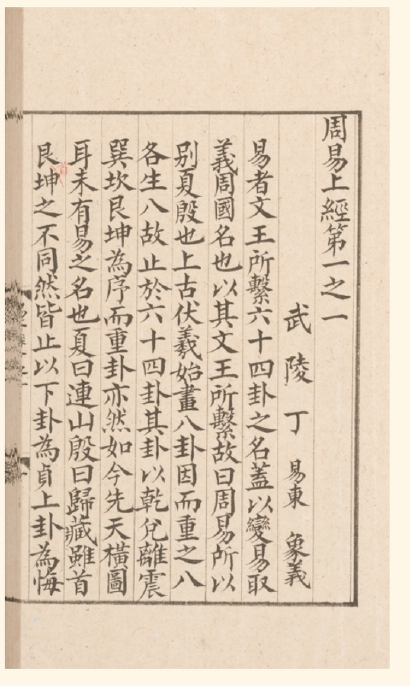 周易上經第一之一
武陵丁易東象義
易者文王所繫六十四卦之名蓋以變易取
義周國名也以其文王所繫故曰周易所以
别夏殷也上古伏羲始畫八卦因而重之八
各生八故止於六十四卦其卦以乾兊離震
巽坎艮坤為序而重卦亦然如今先天橫圖
耳未有易之名也夏曰連山殷曰歸藏雖首
艮坤之不同然皆止以下卦為貞上卦為悔